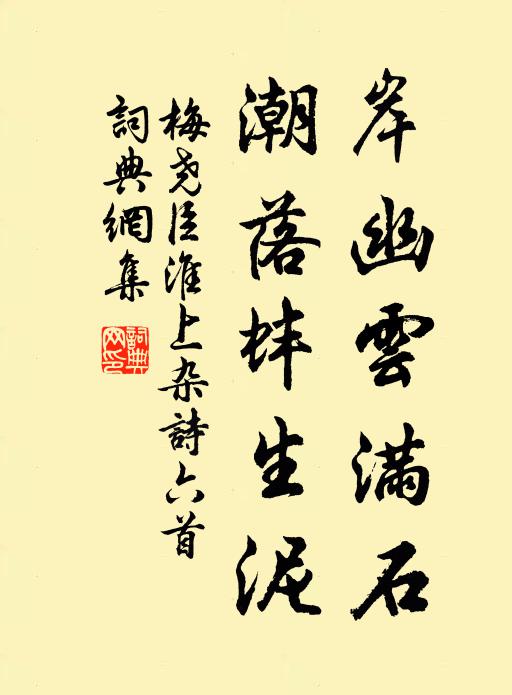 岸幽雲满石
潮落蚌生泥
梅尧臣淮上杂詩六首
詞典網集
詞典网印